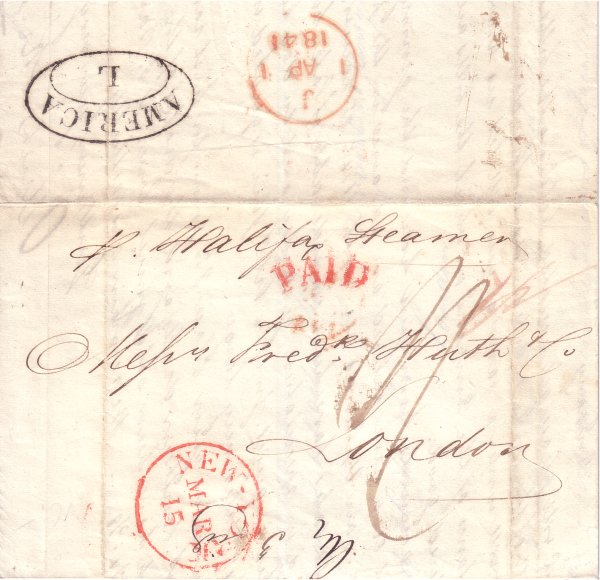 AMERICA
L
J
1 AP 1
1841
p. Halifax Steamer
PAID
Messrs Fredk. Huth & Co
London
NEW-YORK
MAR
15